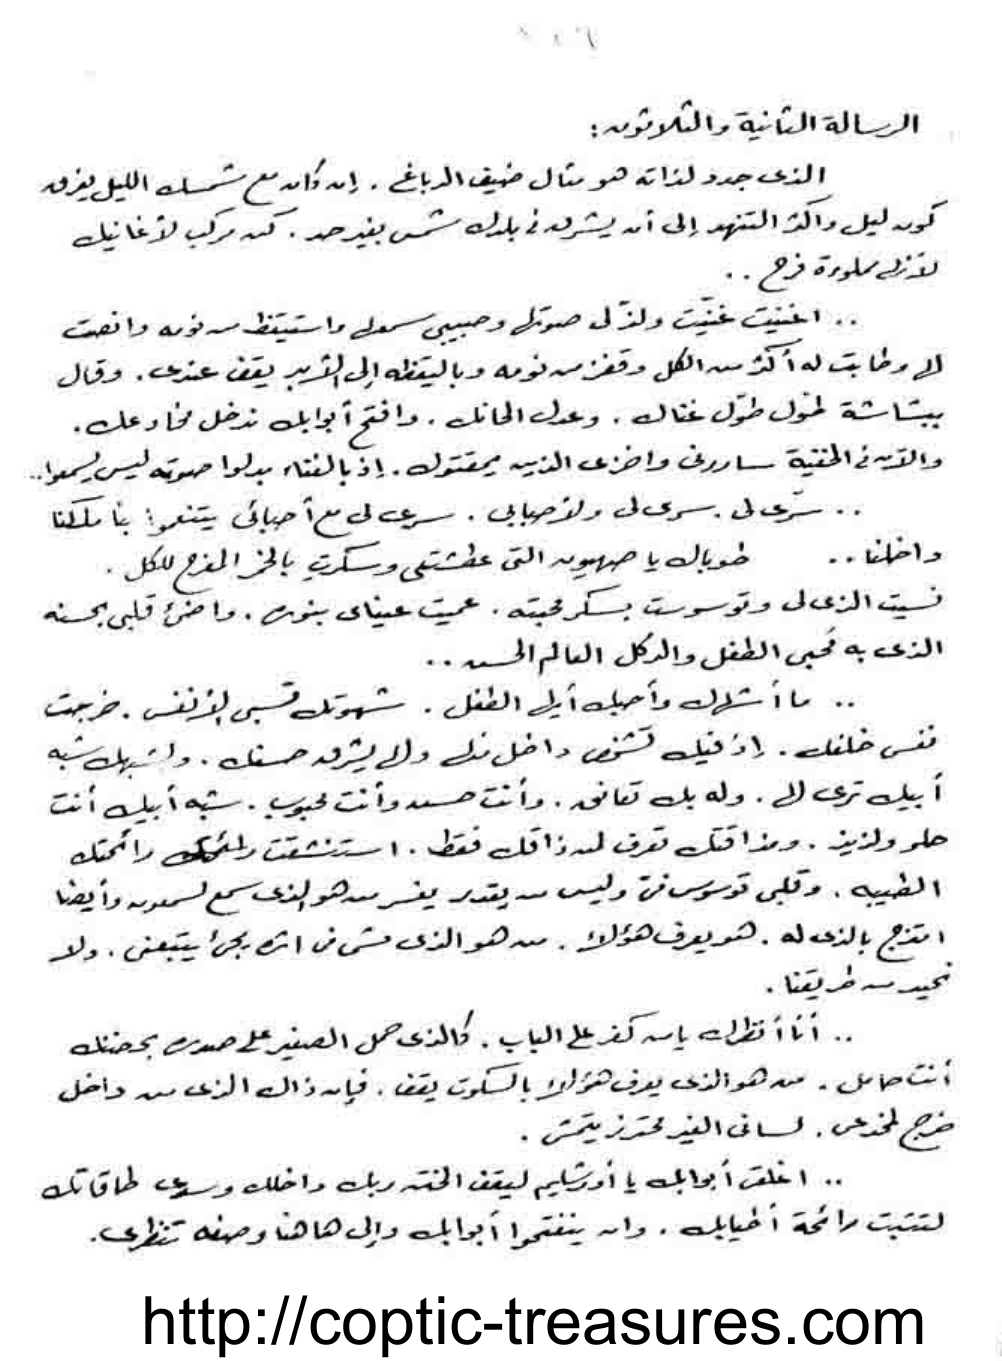 الرسالة الثانية والثلاثون:
الذى جدد لذاته هو مثال ضيف الدباغ. إن كان مع شمسك الليل يفرق
كون ليل واكثر التنهد إلى أن يشرق فى بلدك شمس بغير حد. كن مركب لأغانيك
لأنها مملوءة فرح ..
.. اغنيت غنيّت ولذّ لى صوتها وحبيبى سمعها واستيقظ من نومه وانصت
لها وطابت له أكثر من الكل وقفز من نومه وباليقظه إلى القريب يقف عندى. وقال
ببشاشة طوّل طوّل غناك. وعدل الحانك. وافتح أبوابك ندخل مخادعك.
والآن فى الخفية ساررنى واخزى الذين يمقتوك. إذ بالغناء بدلوا صوته ليس يسمعوا..
.. سرّى لى. سرى لى ولأحبابى. سرى لى مع أحبائى يتنعموا بنا ملكنا
داخلنا.. طوباك يا صهيون التى عطشتى وسكرتِ بالخمر المفرح للكل.
نسيت الذى لى وتوسوست بسكر محبته. عميت عيناى بنوره. واضئ قلبى بحسنه
الذى به مُحبى الطفل والدكل العالم الحسن ..
.. ما أشهاك وأحبك أيها الطفل. شهوتك تسبى الأنفس. خرجت
نفسى خلفك. إذ فيك تشخص داخل منها ولها يشرق حسنك. ولشبهك شبه
أبيك ترى لها. وله بك تعانق. وأنت حسن وأنت محبوب. شبه أبيك أنت
حلو ولذيذ. ومذاقتك تعرف لمن ذاقك فقط. استنشقت رائحتك
الطيبه. وقلبى توسوس فىّ وليس من يقدر يفسر من هو الذى سمع لسمعون وأيضا
امتزج بالذى له. هو يعرف هؤلاء. من هو الذى مشى فى اثره يجئ يتبعنى. ولا
نحيد من طريقنا.
.. أنا أنظرك يا من كنز على الباب. كالذى حمل الصغير على صدره بحضنك
أنت حامل. من هو الذى يعرف هؤلاء بالسكوت يقف. فإن ذاك الذى من داخل
خرج لمخدعى. لسانى الغير محترز يتمشى.
.. اغلق أبوابك يا أورشليم ليقف الختن ربك داخلك وسدى طاقاتك
لتثبت رائحة أطيابك. وان ينفتحوا أبوابك وإلى هاهنا وصفه تنظرى.
http://coptic-treasures.com